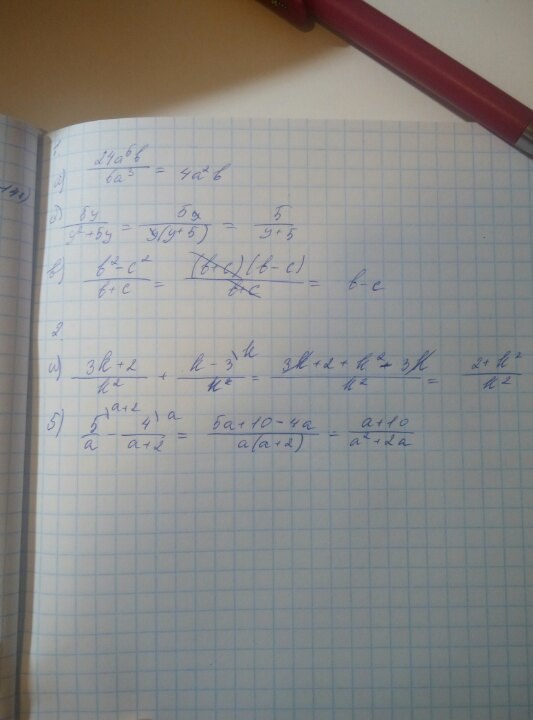 1.
а) 24a⁶b/6a³ = 4a²b
б) 5y/y²+5y = 5y/y(y+5) = 5/y+5
в) b²-c²/b+c = (b+c)(b-c)/b+c = b-c
2.
а) 3k+2/k² + k-3\k/k² = 3k+2+k²-3k/k² = 2+k²/k²
б) 5\a+2/a - 4\a/a+2 = 5a+10-4a/a(a+2) = a+10/a²+2a